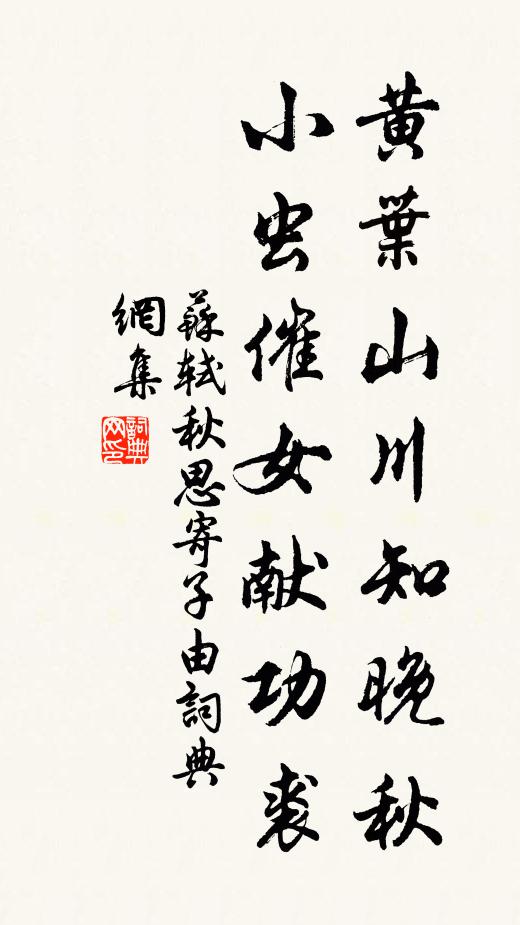 黃葉山川知晚秋
小虫催女献功裘
蘇軾秋思寄子由詞典
網集
詞典
网印